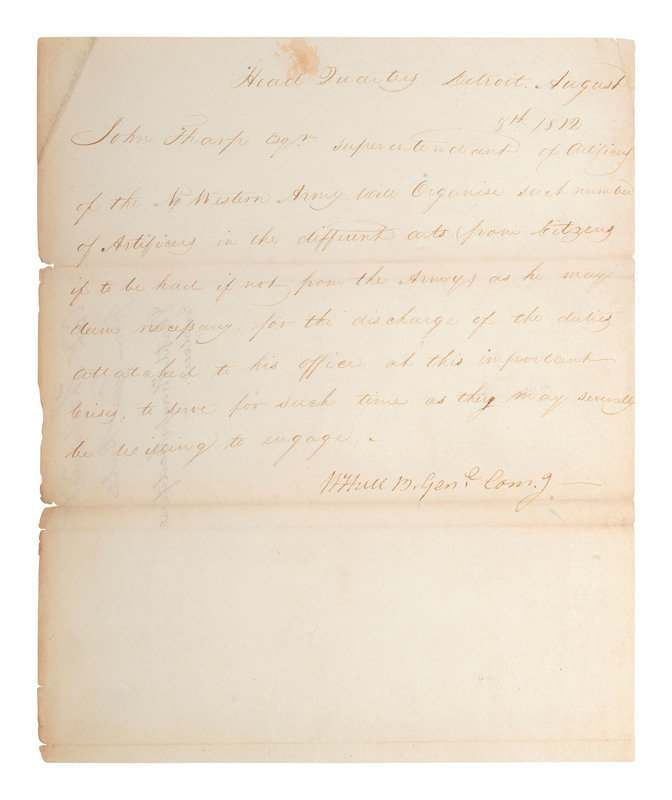 Head Quarters. Detroit. August
8th 1812
John Tharp Esqr superintendant of Artificers
of the N. Western Army. will Organise such number
of Artificers in the different arts (from Citizens
if to be had if not from the Army) as he may
deem necessary for the discharge of the duties
attatched to his office at this important
Crisis. to serve for such time as they may severally
be willing to engage. –
W Hull B. Genl. Comg